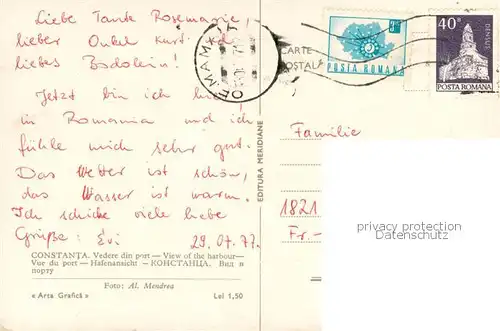 Liebe Tante Rosemarie,
lieber Onkel Kurt
liebes Badolein!
Jetzt bin ich hier
in Romania und ich
fühle mich sehr gut.
Das Wetter ist schön,
das Wasser ist warm.
Ich schicke viele liebe
Grüße: Evi 29.07.77.
CONSTANŢA. Vedere din port — View of the harbour—
Vue du port — Hafenansicht — КОНСТАНЦА. Вид в
порту
Foto: Al. Mendrea
« Arta Grafică » Lei 1,50
EDITURA MERIDIANE
CARTE
POŞTALĂ
POSTA ROMANA
40B
DENSUS
POSTA ROMANA
Familie
1821
Fr.-
privacy protection
Datenschutz